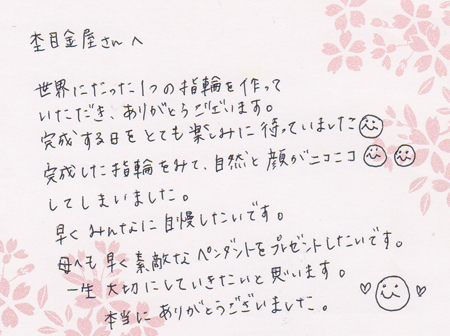 杢目金屋さんへ
世界にたった1つの指輪を作って
いただき、ありがとうございます。
完成する日をとても楽しみに待っていました
完成した指輪をみて、自然と顔がニコニコ
してしまいました。
早くみんなに自慢したいです。
母へも早く素敵なペンダントをプレゼントしたいです。
一生大切にしていきたいと思います。
本当にありがとうございました。